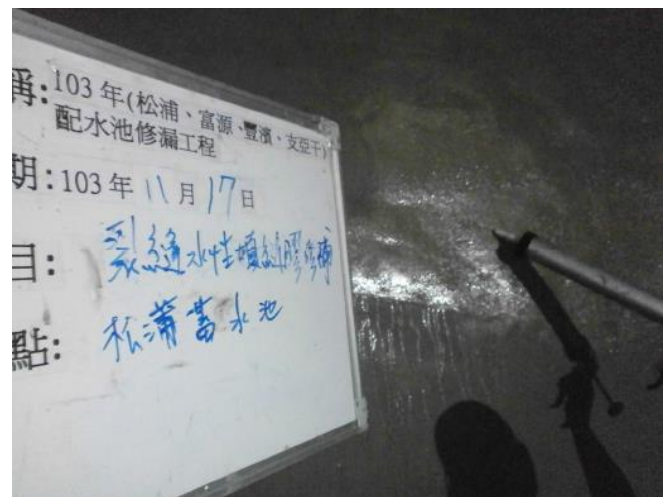 稱:103年(松浦、富源、豐濱、支亞干)
配水池修漏工程
期:103年11月17日
目: 裂縫水性填縫膠修補
點: 松浦蓄水池